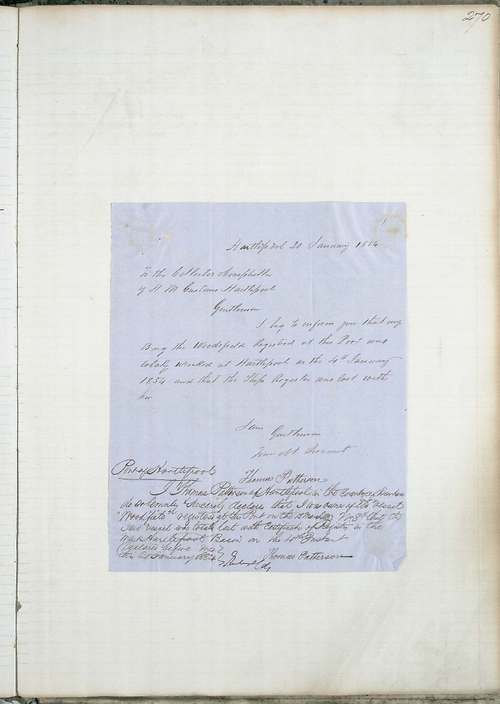 270
Hartlepool 20 January 1854
To the Collector Comptroller
of H. M. Customs Hartlepool
Gentlemen
I beg to inform you that my
Brig the Woodsfield Registered at this Port was
totally wrecked at Hartlepool on the 4th January
1854 and that the Ships Register was lost with
her
I am Gentlemen
Your Obt Servant
Thomas Patterson
Port of Hartlepool
I Thomas Patterson of Hartlepool in the County of Durham
do solemnly & sincerely declare that I was owner of the Vessel
registered at this Port on the
said vessel was totally lost with Certificate of Registry in the
West Harlepool Basin on the 4th Instant
Declared before me
this 20 January 1854
Thomas Patterson